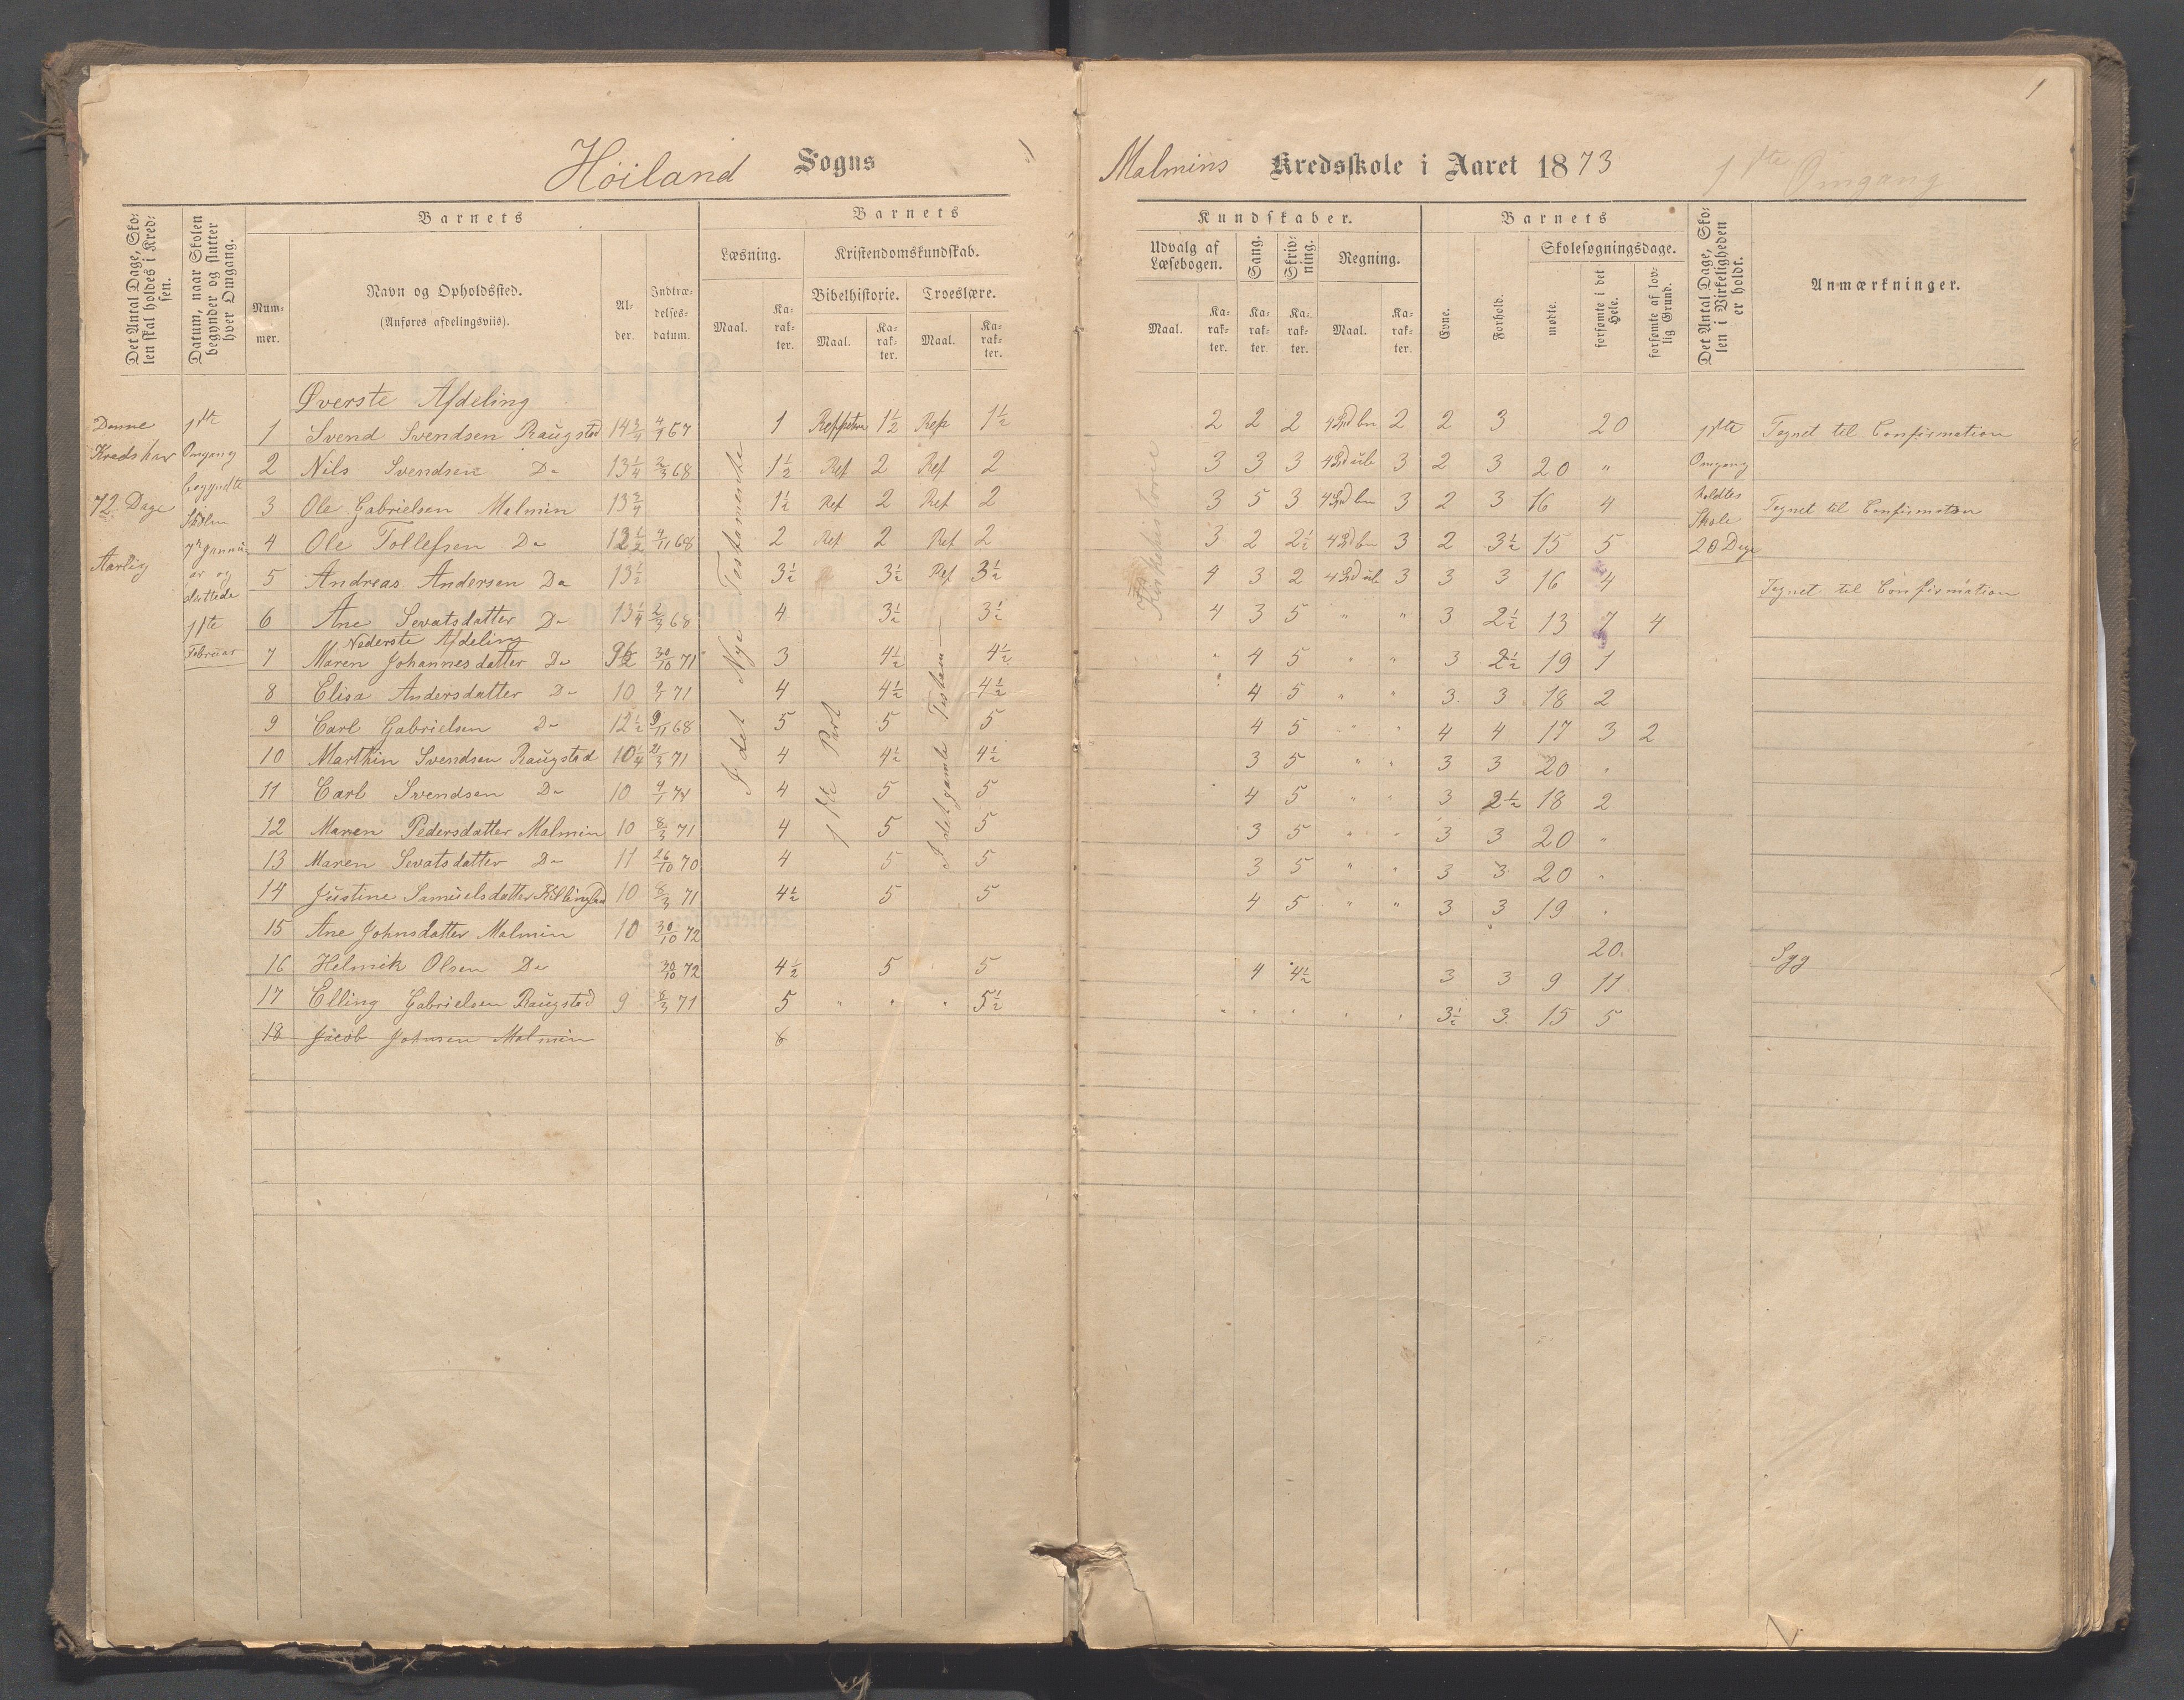 1
Höiland Sogns
Malmins Kredsskole i Aaret 1873 1ste Omgang
Det Antal Dage, Skolen skal holdes i Kredsen.
Datum, naar Skolen begynder og slutter hver Omgang.
Barnets
Nummer.
Navn og Opholdssted.
(Anføres afdelingsviis).
Alder.
Indtrædelsesdatum.
Barnets
Læsning.
Maal.
Karakter.
Kristendomskundskab.
Bibelhistorie.
Troeslære.
Maal.
Karakter.
Maal.
Karakter.
Kundskaber.
Udvalg af Læsebogen.
Maal.
Karakter.
Sang.
Karakter.
Skrivning.
Karakter.
Regning.
Maal.
Karakter.
Barnets
Evne.
Forhold.
Skolesøgningsdage.
mødte.
forsømte i det Hele.
forsømte af lovlig Grund.
Det Antal Dage, Skolen i Virkeligheden er holdt.
Anmærkninger.
Denne
Kreds har
72 Dage
Aarlig
1ste
Omgang
begyndte
Skolen
7de Januar
og
sluttede
1ste
Februar
I det Nye Testamente
1ste Part
I det gamle Testam
Kirkehistorie
Øverste Afdeling
1 Svend Svendsen Raugstad 14 3/4 4/9 67 1 Reppetion 1 1/2 Rep 1 1/2 2 2 2 2 2 3 20 Tegnet til Confirmation
2 Nils Svendsen Do 13 1/4 2/3 68 1 1/2 Ref 2 Ref 2 3 3 3 3 2 3 20 "
3 Ole Gabrielsen Malmin 13 3/4 1 1/2 Ref 2 Ref 2 3 5 3 3 2 3 16 4 Tegnet til Confirmation
4 Ole Tollefsen Do 12 1/2 4/11 68 2 Ref 2 Ref 2 3 2 2 1/2 3 2 3 1/2 15 5
5 Andreas Andersen Do 13 1/2 3 1/2 3 1/2 Ref 3 1/2 4 3 2 3 3 3 16 4 Tegnet til Confirmation
6 Ane Sevatsdatter Do 13 1/4 2/3 68 4 3 1/2 3 1/2 4 3 5 " " 3 2 1/2 13 7 4
Nederste Afdeling
7 Maren Johannesdatter Do 9 1/2 30/10 71 3 4 1/2 4 1/2 " 4 5 " " 3 2 1/2 19 1
8 Elisa Andersdatter Do 10 9/1 71 4 4 1/2 4 1/2 " 4 5 " " 3 3 18 2
9 Carl Gabrielsen Do 12 1/2 9/11 68 5 5 5 4 5 " " 4 4 17 3 2
10 Marthin Svendsen Raugstad 10 1/4 2/3 71 4 4 1/2 4 1/2 3 5 " " 3 3 20 "
11 Carl Svendsen Do 10 4 5 5 4 5 " " 3 2 1/2 18 2
12 Maren Pedersdatter Malmin 10 8/3 71 4 5 5 3 5 " " 3 3 20 "
13 Maren Sevatsdatter Do 11 26/10 70 4 5 5 3 5 " " 3 3 20 "
14 Justine Samuelsdatter 10 8/3 71 4 1/2 5 5 4 5 " " 3 3 19 "
15 Ane Johnsdatter Malmin 10 30/10 72 20 Syg
16 Helmik Olsen Do 30/10 72 4 1/2 5 5 4 4 1/2 3 3 9 11
17 Elling Gabrielsen Raugstad 9 8/3 71 5 " " " 5 1/2 " " " " " 3 1/2 3 15 5
18 Jacob Johnsen Malmin 6
1ste
Omgang
holdtes
Skole
20 Dage